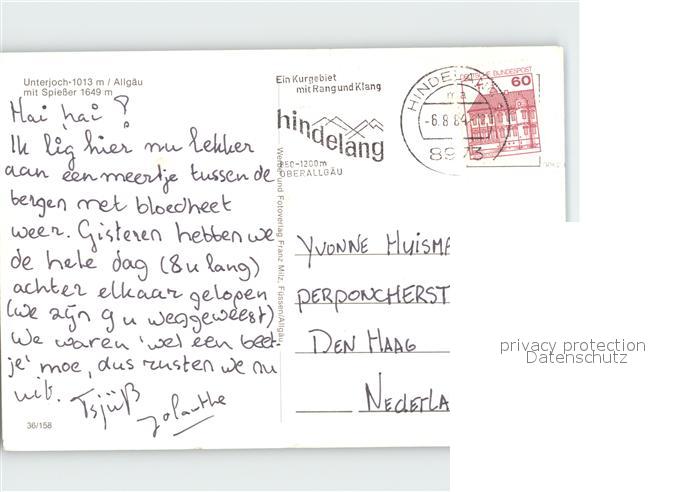 Unterjoch-1013 m / Allgäu
mit Spießer 1649 m
Hai hai!
Ik lig hier nu lekker
aan een meertje tussen de
bergen met bloedheet
weer. Gisteren hebben we
de hele dag (8 u lang)
achter elkaar gelopen
(we zijn 9 u weggeweest)
We waren 'wel een beet-
je' moe, dus rusten we nu
uit. Tsjüß
Jolanthe
36/158
Verlag und Fotoverlag Franz Milz, Füssen/Allgäu
Ein Kurgebiet
mit Rang und Klang
hindelang
850-1200m
OBERALLGÄU
HINDELANG
ma
-6.8.84
8973
DEUTSCHE BUNDESPOST
60
YVONNE HUISMA
PERPONCHERST
DEN HAAG
NEDERLA
privacy protection
Datenschutz